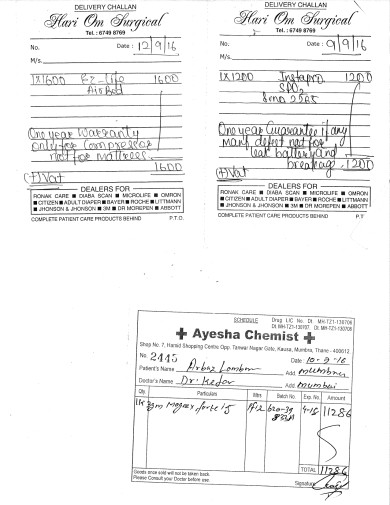 DELIVERY CHALLAN
Hari Om Surgical
Tel. : 6749 8769
No. Date : 12/9/16
M/s.
1X1600 Ez-life 1600
Air Bed
One year Warranty
only for Compressor
not for mattress.
1600
(+) Vat
DEALERS FOR
RONAK CARE ■ DIABA SCAN ■ MICROLIFE ■ OMRON
■ CITIZEN ■ ADULT DIAPER ■ BAYER ■ ROCHE ■ LITTMANN
■ JHONSON & JHONSON ■ 3M ■ DR MOREPEN ■ ABBOTT
COMPLETE PATIENT CARE PRODUCTS BEHIND P.T.O.
DELIVERY CHALLAN
Hari Om Surgical
Tel. : 6749 8769
No. Date : 9/9/16
M/s.
1X1200 Instapro 1200
SPO2
One year Guarantee if any
manf defect not for
leak battery and
breakage. 1200
(+) Vat
DEALERS FOR
RONAK CARE ■ DIABA SCAN ■ MICROLIFE ■ OMRON
■ CITIZEN ■ ADULT DIAPER ■ BAYER ■ ROCHE ■ LITTMANN
■ JHONSON & JHONSON ■ 3M ■ DR MOREPEN ■ ABBOTT
COMPLETE PATIENT CARE PRODUCTS BEHIND P.T.O.
SCHEDULE Drug LIC No. Dt. MH-TZ1-130706
Dt. MH-TZ1-130707 Dt. MH-TZ1-130708
Ayesha Chemist
Shop No. 7, Hamid Shopping Centre Opp. Tanwar Nagar Gate, Kausa, Mumbra, Thane - 400012.
No. 2445 Date : 10-9-16
Patient's Name Arbaz Add mumbra
Doctor's Name Dr. Kedar Add mumbai
Qty. Particulars Mfrs. Batch No. Exp. No. Amount
Magnex forte 11286
TOTAL 11286
Goods once sold will not be taken back.
Please Consult your Doctor before use.
Signature